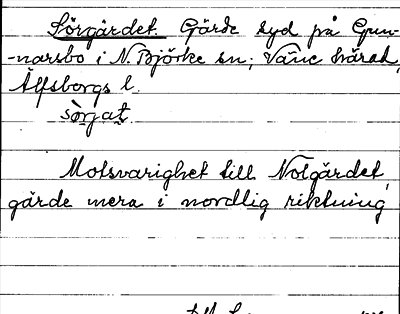 Sörgärdet. Gärde syd på Gun-
-narsbo i N. Björke sn; Väne härad,
Älfsborgs l.
sörjat.
Motsvarighet till Nolgärdet,
gärde mera i nordlig riktning